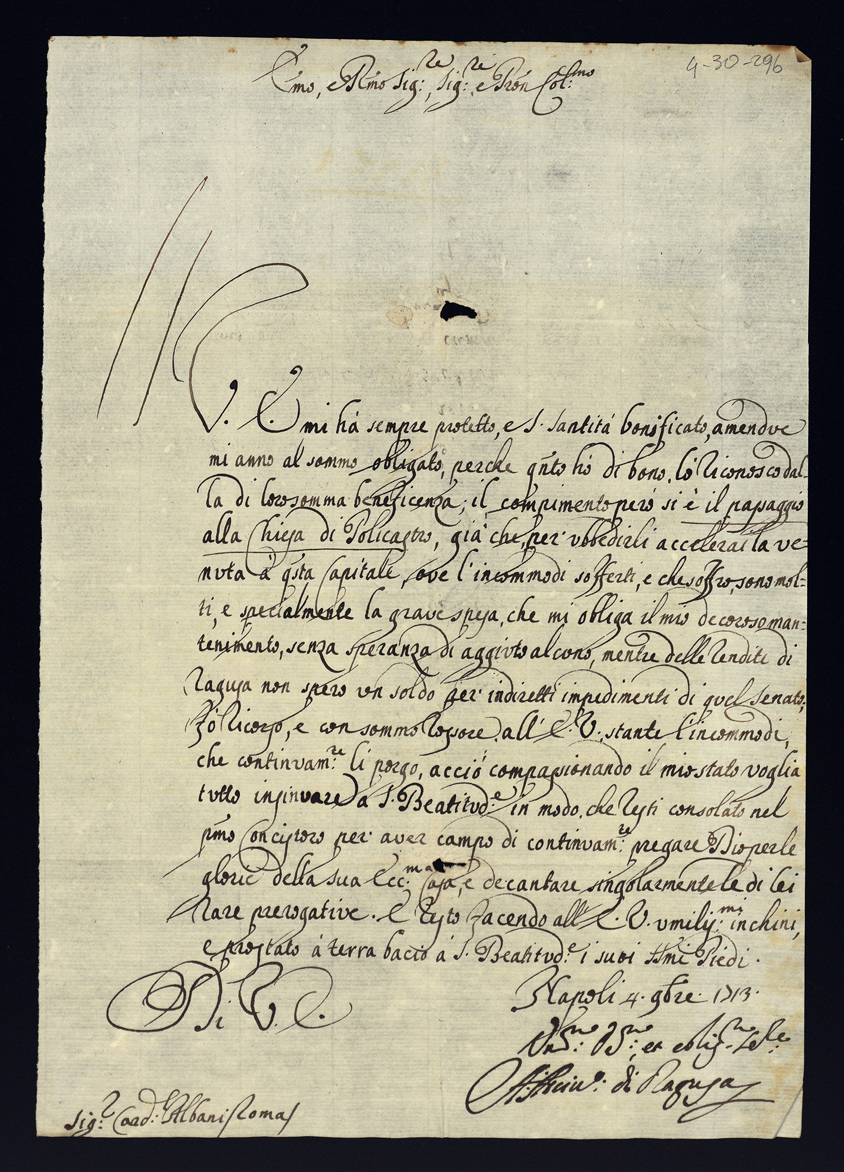 4-30-296
Emo, e Rmo Sig:re, Sig:re e Pron Col:mo
V. E. mi há sempre protetto, e S. Santitá bonificato, amendue
mi anno al sommo obligato, perche qnto hó di bono, ló riconosco dal-
la di loro somma beneficenza; il compimento peró si é il passaggio
alla Chiesa di Policastro, giá che per ubbedirli accelerai la ve=
nuta á qsta Capitale, ove l'incommodi sofferti, e che soffro, sono mol=
ti, e specialmente la grave spesa, che mi obliga il mio decoroso man=
tenimento, senza speranza di aggiuto alcuno, mentre delle rendite di
Ragusa non spero un soldo per indiretti impedimenti di quel Senato.
Fó ricorso, e con sommo rossore all' E. V. stante l'incommodi,
che continuam:te li porgo, acció compassionando il mio stato voglia
tutto insinuare á S. Beatitud:e in modo, che resti consolato nel
pmo Concistoro per aver campo di continuam:te pregare Dio per le
glorie della sua Ecc:ma Casa, e decantare singolarmente le di lei
rare prerogative. E resto facendo all' E. V. umilis:mi inchini,
e prostato á terra bacio á S. Beatitud:e i suoi SSmi Piedi.
Di V. E.
Napoli 4. 9bre. 1713.
et oblig:mo
di Ragusa
Sig:r Card: Albani Roma/